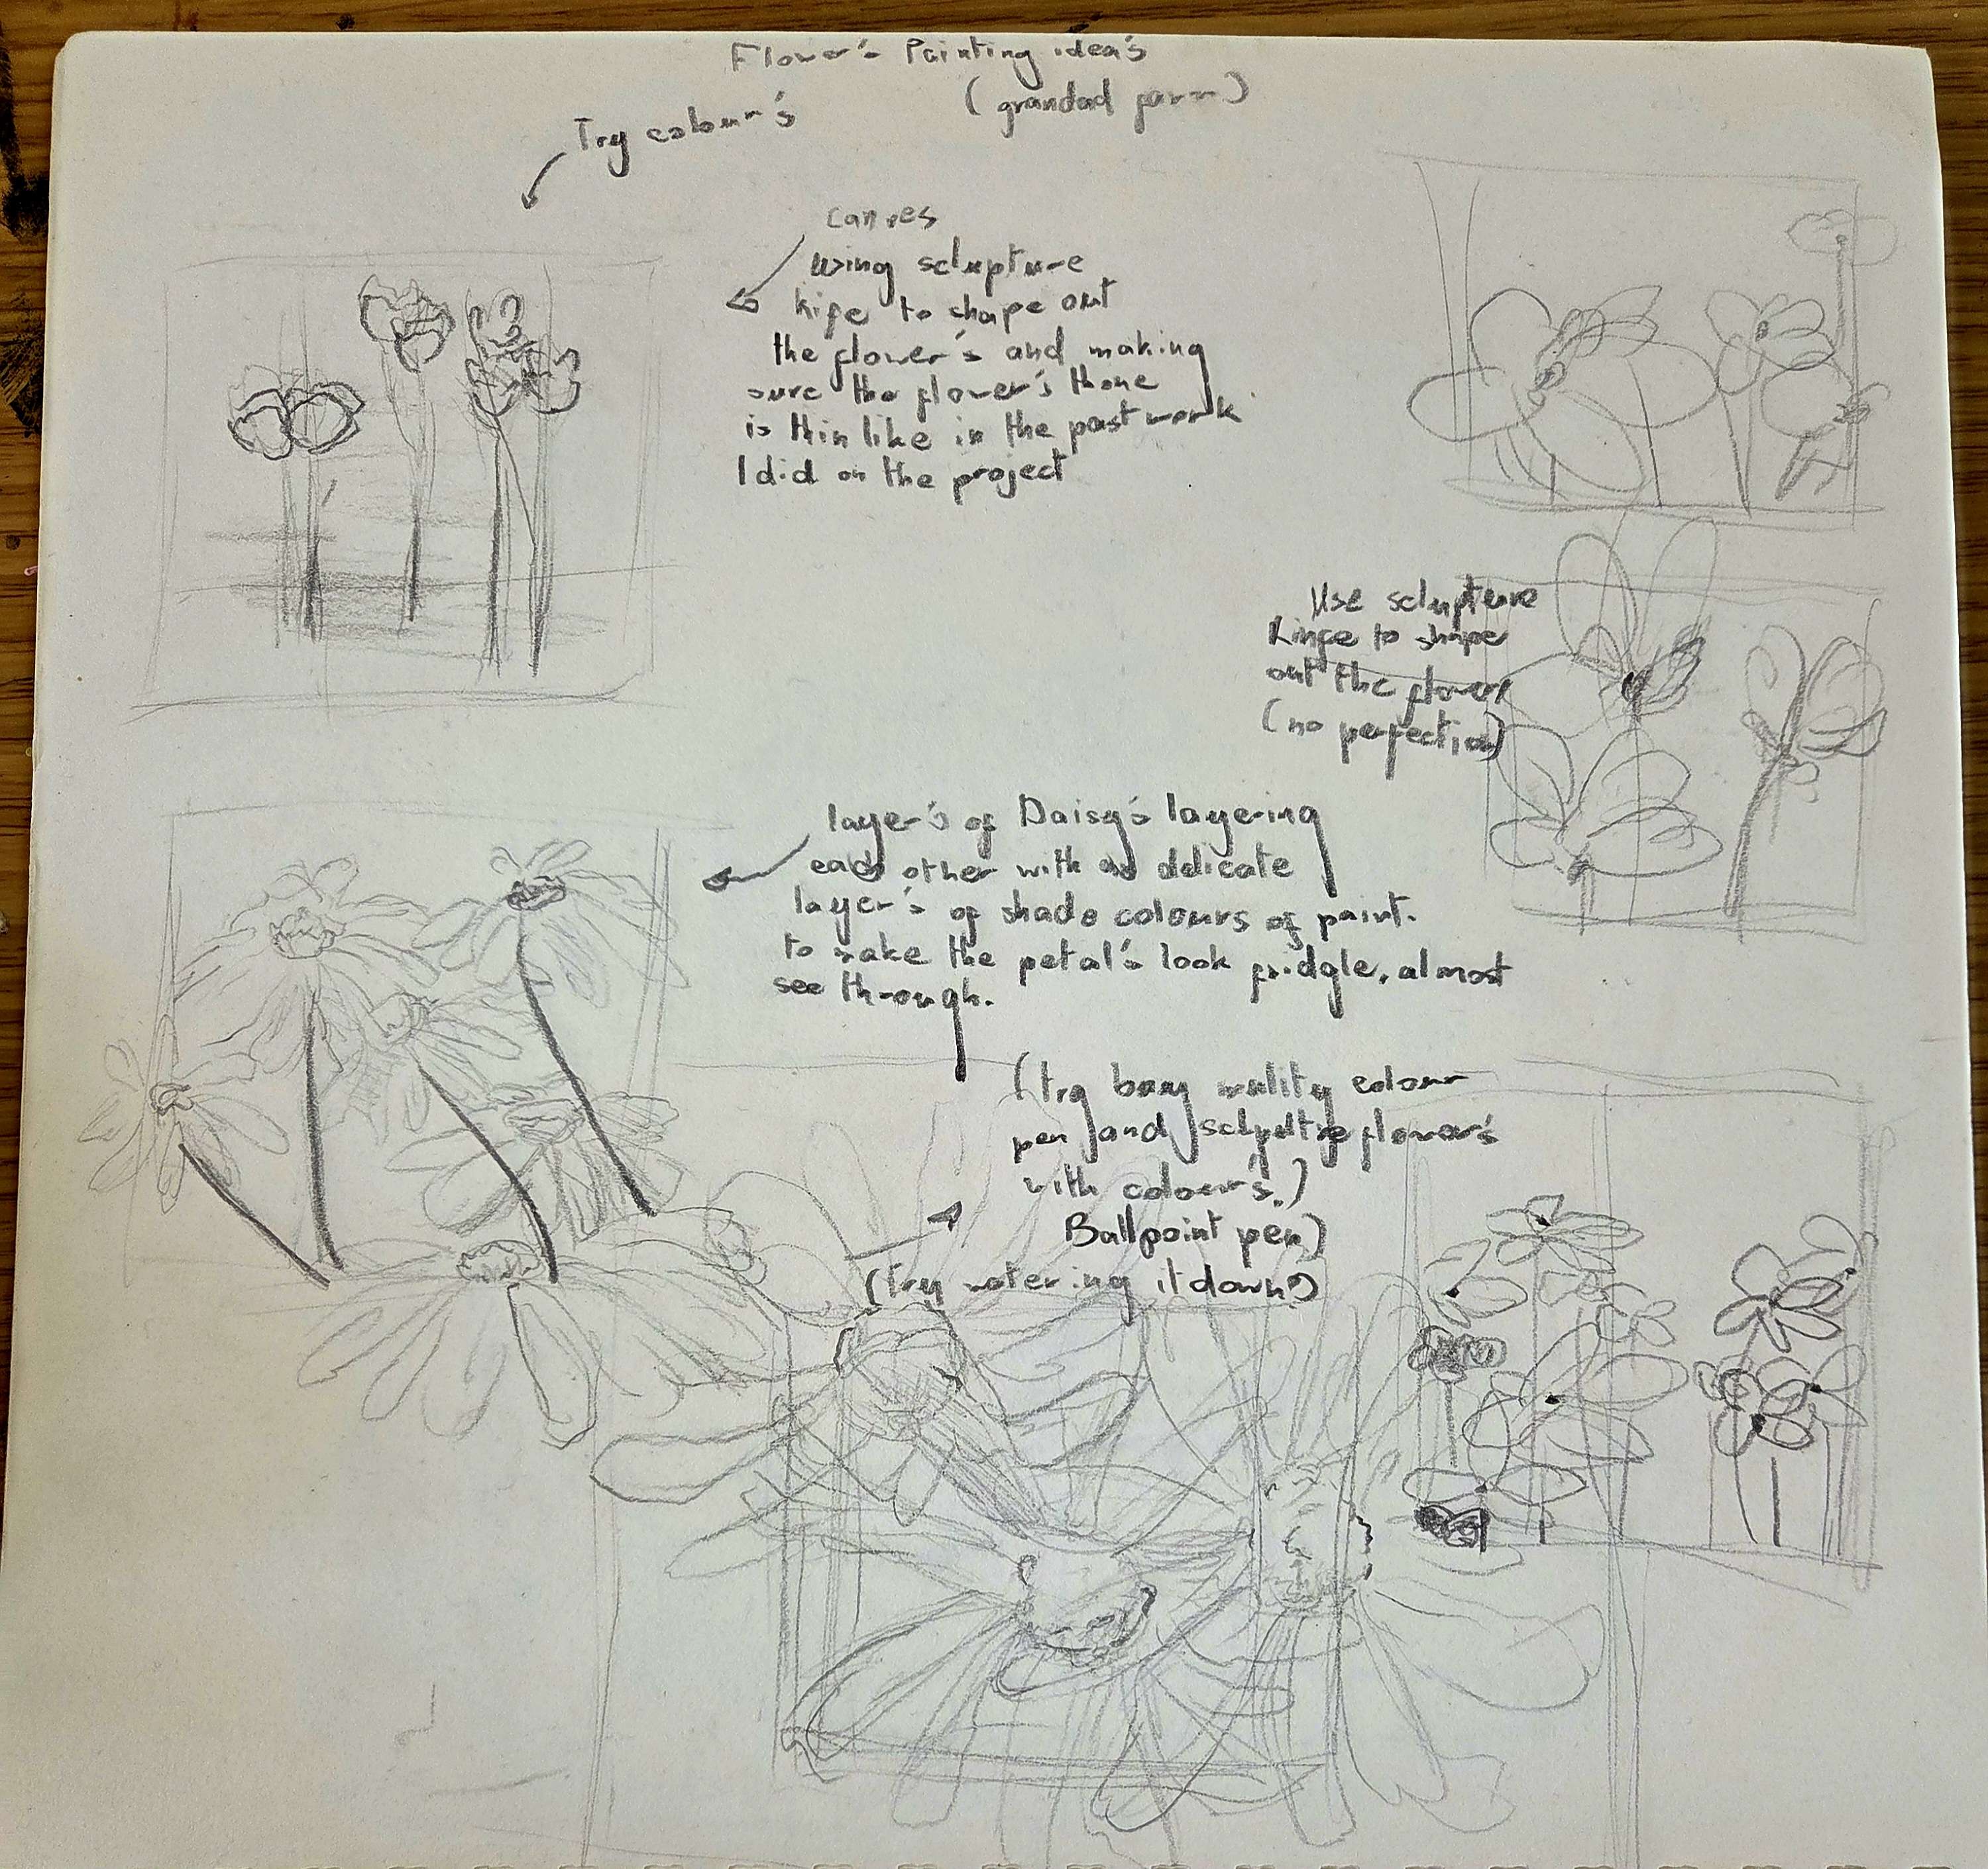 Flower's Painting idea's
(grandad farm)
Try colour's
canves
using sclupture
kife to shape out
the flower's and making
sure the flower's thone
is thin like in the past work
I did on the project
Use sclupture
kinfe to shape
out the flowers
(no perfection)
layer's of Daisy's layering
each other with as delicate
layer's of shade colours of paint.
to make the petal's look fridgle, almost
see through.
(try buy colour
pen and flower's
with colour's.)
Ballpoint pen)
(Try watering it down?)